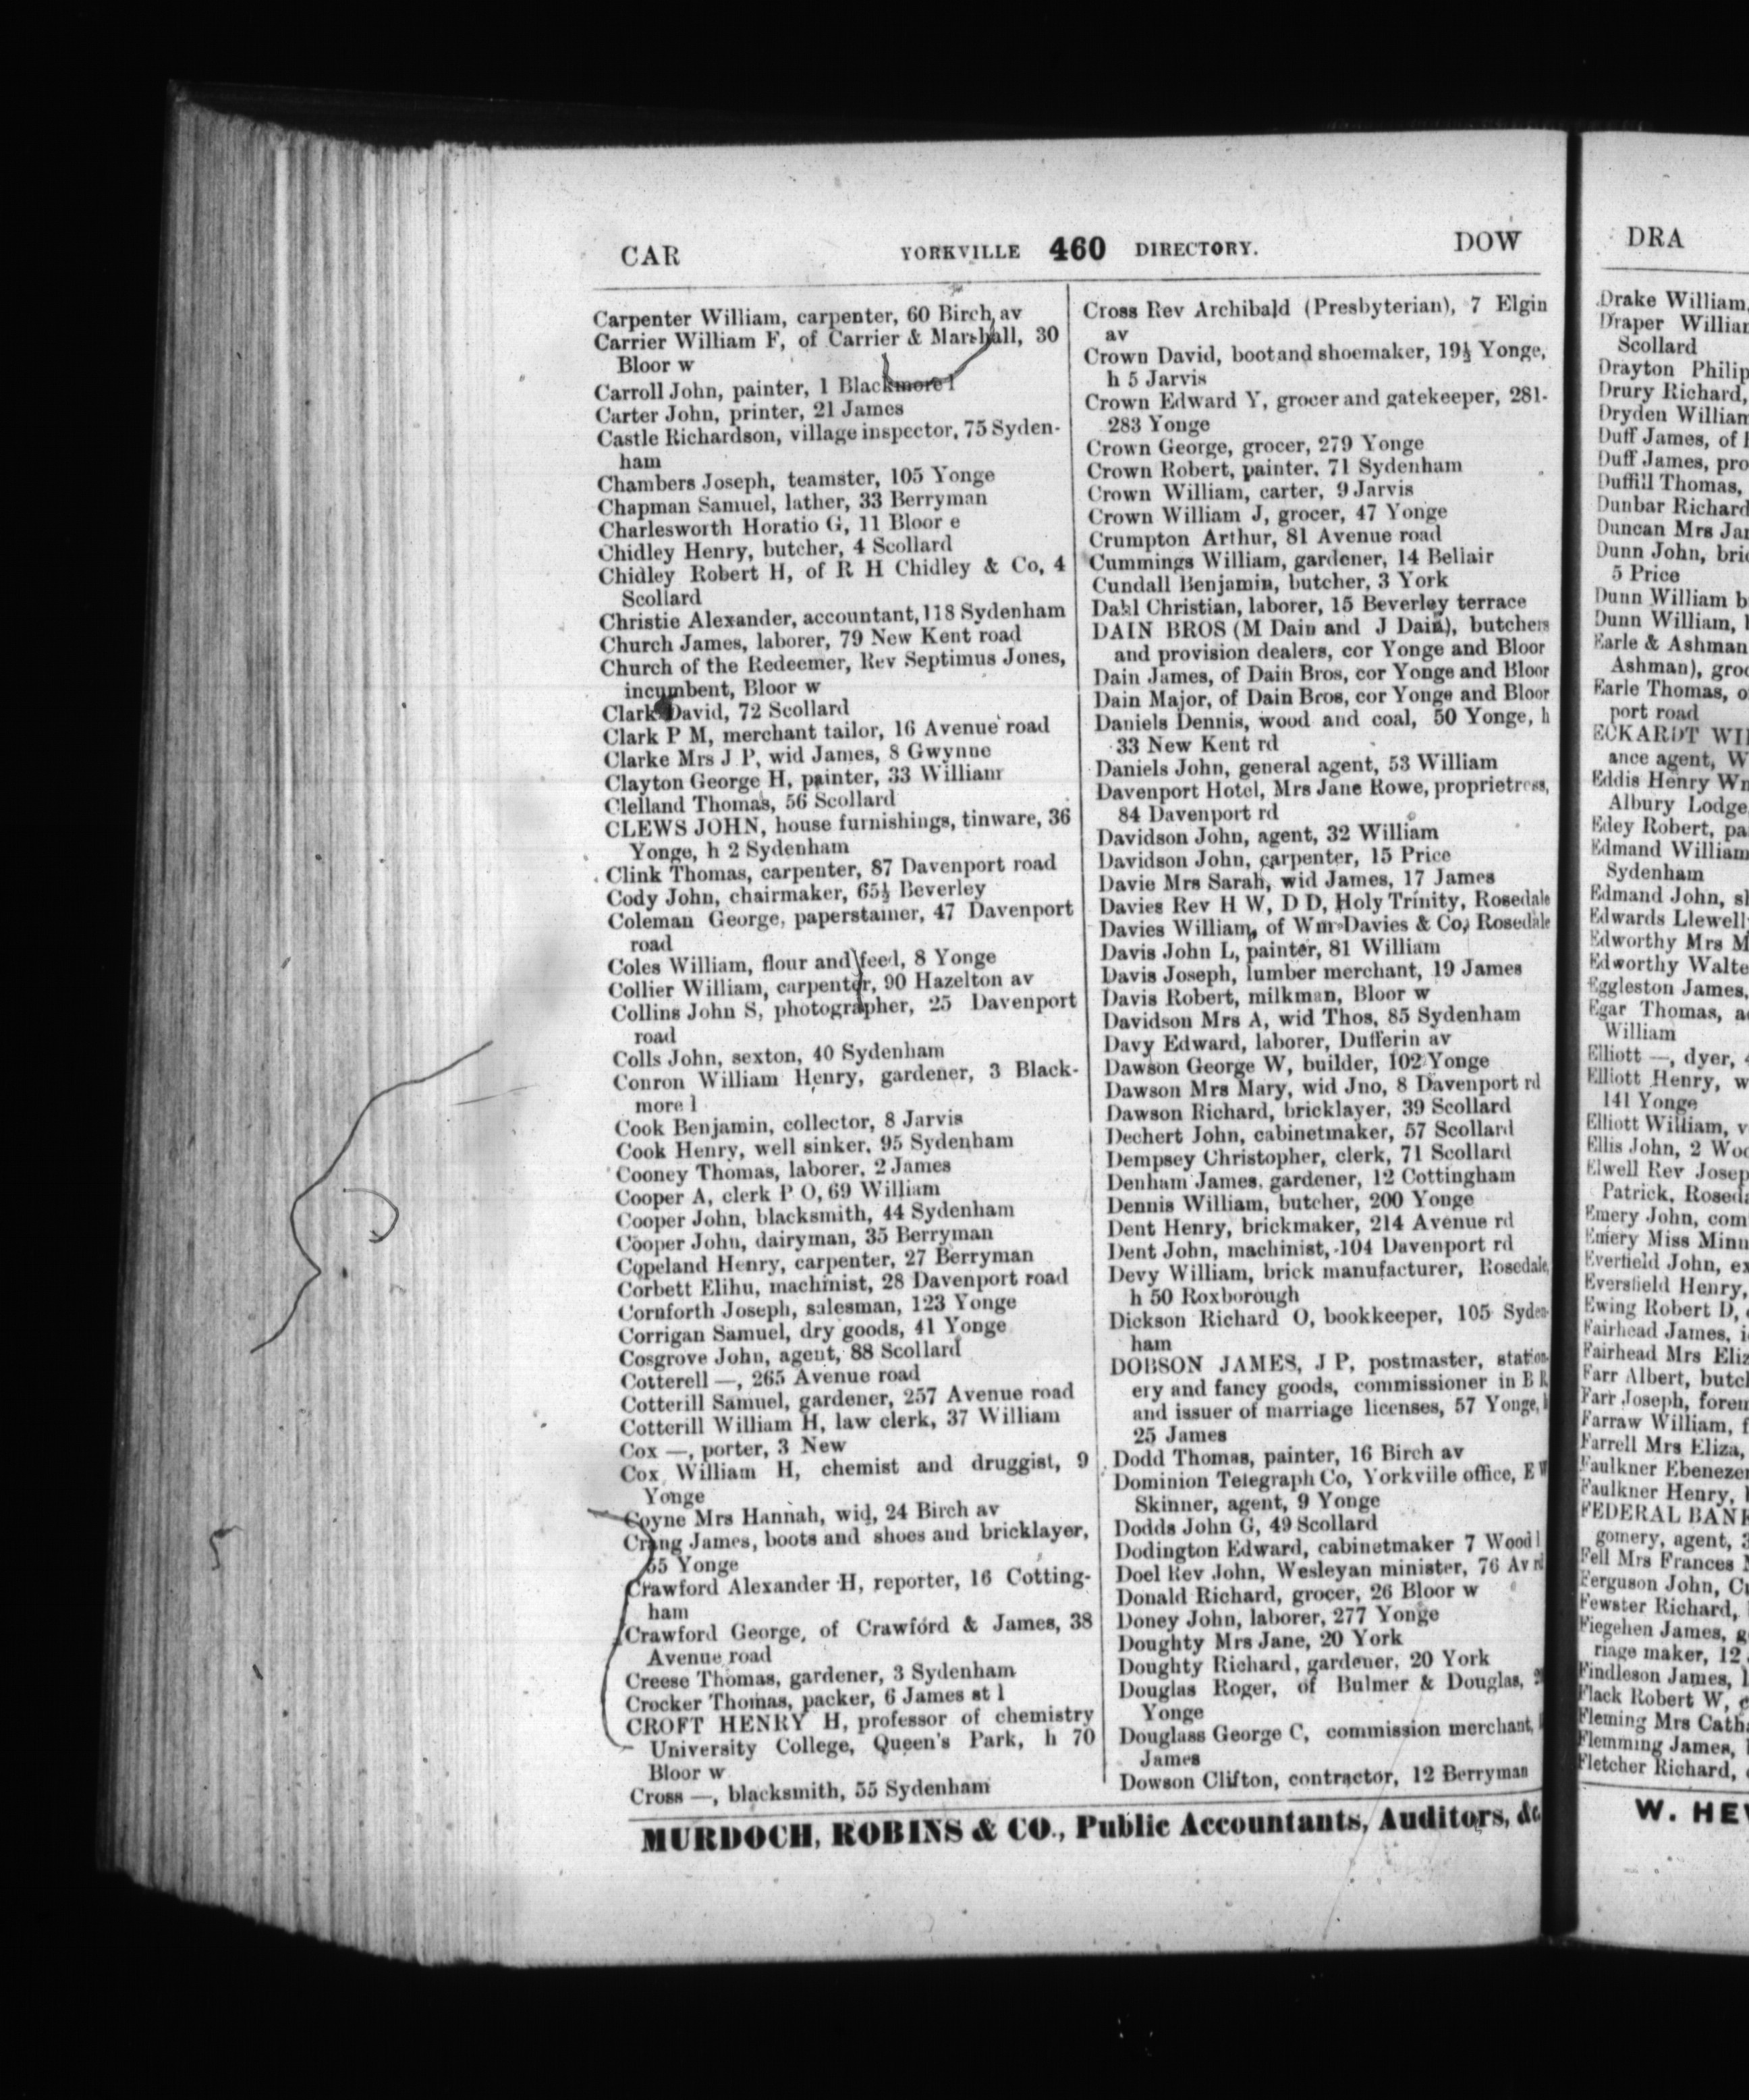 CAR YORKVILLE 460 DIRECTORY. DOW
Carpenter William, carpenter, 60 Birch av
Carrier William F, of Carrier & Marshall, 30
Bloor w
Carroll John, painter, 1 Blackmore l
Carter John, printer, 21 James
Castle Richardson, village inspector, 75 Syden-
ham
Chambers Joseph, teamster, 105 Yonge
Chapman Samuel, lather, 33 Berryman
Charlesworth Horatio G, 11 Bloor e
Chidley Henry, butcher, 4 Scollard
Chidley Robert H, of R H Chidley & Co, 4
Scollard
Christie Alexander, accountant, 118 Sydenham
Church James, laborer, 79 New Kent road
Church of the Redeemer, Rev Septimus Jones,
incumbent, Bloor w
Clark David, 72 Scollard
Clark P M, merchant tailor, 16 Avenue road
Clarke Mrs J P, wid James, 8 Gwynne
Clayton George H, painter, 33 William
Clelland Thomas, 56 Scollard
CLEWS JOHN, house furnishings, tinware, 36
Yonge, h 2 Sydenham
Clink Thomas, carpenter, 87 Davenport road
Cody John, chairmaker, 65½ Beverley
Coleman George, paperstainer, 47 Davenport
road
Coles William, flour and feed, 8 Yonge
Collier William, carpenter, 90 Hazelton av
Collins John S, photographer, 25 Davenport
road
Colls John, sexton, 40 Sydenham
Conron William Henry, gardener, 3 Black-
more l
Cook Benjamin, collector, 8 Jarvis
Cook Henry, well sinker, 95 Sydenham
Cooney Thomas, laborer, 2 James
Cooper A, clerk P O, 69 William
Cooper John, blacksmith, 44 Sydenham
Cooper John, dairyman, 35 Berryman
Copeland Henry, carpenter, 27 Berryman
Corbett Elihu, machinist, 28 Davenport road
Cornforth Joseph, salesman, 123 Yonge
Corrigan Samuel, dry goods, 41 Yonge
Cosgrove John, agent, 88 Scollard
Cotterell —, 265 Avenue road
Cotterill Samuel, gardener, 257 Avenue road
Cotterill William H, law clerk, 37 William
Cox —, porter, 3 New
Cox William H, chemist and druggist, 9
Yonge
Coyne Mrs Hannah, wid, 24 Birch av
Craig James, boots and shoes and bricklayer,
55 Yonge
Crawford Alexander H, reporter, 16 Cotting-
ham
Crawford George, of Crawford & James, 38
Avenue road
Creese Thomas, gardener, 3 Sydenham
Crocker Thomas, packer, 6 James st l
CROFT HENRY H, professor of chemistry
University College, Queen's Park, h 70
Bloor w
Cross —, blacksmith, 55 Sydenham
Cross Rev Archibald (Presbyterian), 7 Elgin
av
Crown David, boot and shoemaker, 19½ Yonge,
h 5 Jarvis
Crown Edward Y, grocer and gatekeeper, 281-
283 Yonge
Crown George, grocer, 279 Yonge
Crown Robert, painter, 71 Sydenham
Crown William, carter, 9 Jarvis
Crown William J, grocer, 47 Yonge
Crumpton Arthur, 81 Avenue road
Cummings William, gardener, 14 Bellair
Cundall Benjamin, butcher, 3 York
Dahl Christian, laborer, 15 Beverley terrace
DAIN BROS (M Dain and J Dain), butchers
and provision dealers, cor Yonge and Bloor
Dain James, of Dain Bros, cor Yonge and Bloor
Dain Major, of Dain Bros, cor Yonge and Bloor
Daniels Dennis, wood and coal, 50 Yonge, h
33 New Kent rd
Daniels John, general agent, 53 William
Davenport Hotel, Mrs Jane Rowe, proprietress,
84 Davenport rd
Davidson John, agent, 32 William
Davidson John, carpenter, 15 Price
Davie Mrs Sarah, wid James, 17 James
Davies Rev H W, D D, Holy Trinity, Rosedale
Davies William, of Wm Davies & Co, Rosedale
Davis John L, painter, 81 William
Davis Joseph, lumber merchant, 19 James
Davis Robert, milkman, Bloor w
Davidson Mrs A, wid Thos, 85 Sydenham
Davy Edward, laborer, Dufferin av
Dawson George W, builder, 102 Yonge
Dawson Mrs Mary, wid Jno, 8 Davenport rd
Dawson Richard, bricklayer, 39 Scollard
Dechert John, cabinetmaker, 57 Scollard
Dempsey Christopher, clerk, 71 Scollard
Denham James, gardener, 12 Cottingham
Dennis William, butcher, 200 Yonge
Dent Henry, brickmaker, 214 Avenue rd
Dent John, machinist, 104 Davenport rd
Devy William, brick manufacturer, Rosedale,
h 50 Roxborough
Dickson Richard O, bookkeeper, 105 Syden-
ham
DOBSON JAMES, J P, postmaster, station-
ery and fancy goods, commissioner in B R
and issuer of marriage licenses, 57 Yonge, h
25 James
Dodd Thomas, painter, 16 Birch av
Dominion Telegraph Co, Yorkville office, E W
Skinner, agent, 9 Yonge
Dodds John G, 49 Scollard
Dodington Edward, cabinetmaker 7 Wood l
Doel Rev John, Wesleyan minister, 76 Av rd
Donald Richard, grocer, 26 Bloor w
Doney John, laborer, 277 Yonge
Doughty Mrs Jane, 20 York
Doughty Richard, gardener, 20 York
Douglas Roger, of Bulmer & Douglas,
Yonge
Douglass George C, commission merchant,
James
Dowson Clifton, contractor, 12 Berryman
MURDOCH, ROBINS & CO., Public Accountants, Auditors, &c
DRA
Drake William,
Draper William
Scollard
Drayton Philip
Drury Richard,
Dryden William
Duff James, of
Duff James, pro
Duffill Thomas,
Dunbar Richard
Duncan Mrs Jan
Dunn John, bric
5 Price
Dunn William b
Dunn William,
Earle & Ashman
Ashman), groc
Earle Thomas, o
port road
ECKARDT WIL
ance agent, W
Eddis Henry Wm
Albury Lodge
Edey Robert, pa
Edmand William
Sydenham
Edmand John, sh
Edwards Llewell
Edworthy Mrs M
Edworthy Walte
Eggleston James,
Egar Thomas, a
William
Elliott —, dyer, 4
Elliott Henry, w
141 Yonge
Elliott William, v
Ellis John, 2 Woo
Elwell Rev Josep
Patrick, Roseda
Emery John, com
Emery Miss Minn
Everfield John, ex
Eversfield Henry,
Ewing Robert D,
Fairhead James,
Fairhead Mrs Eliz
Farr Albert, butch
Farr Joseph, forem
Farraw William, f
Farrell Mrs Eliza,
Faulkner Ebenezer
Faulkner Henry,
FEDERAL BANK
gomery, agent, 3
Fell Mrs Frances
Ferguson John,
Fewster Richard,
Fiegehen James, g
riage maker, 12
Findleson James, 1
Flack Robert W,
Fleming Mrs Cath
Flemming James,
Fletcher Richard,
W. HEW